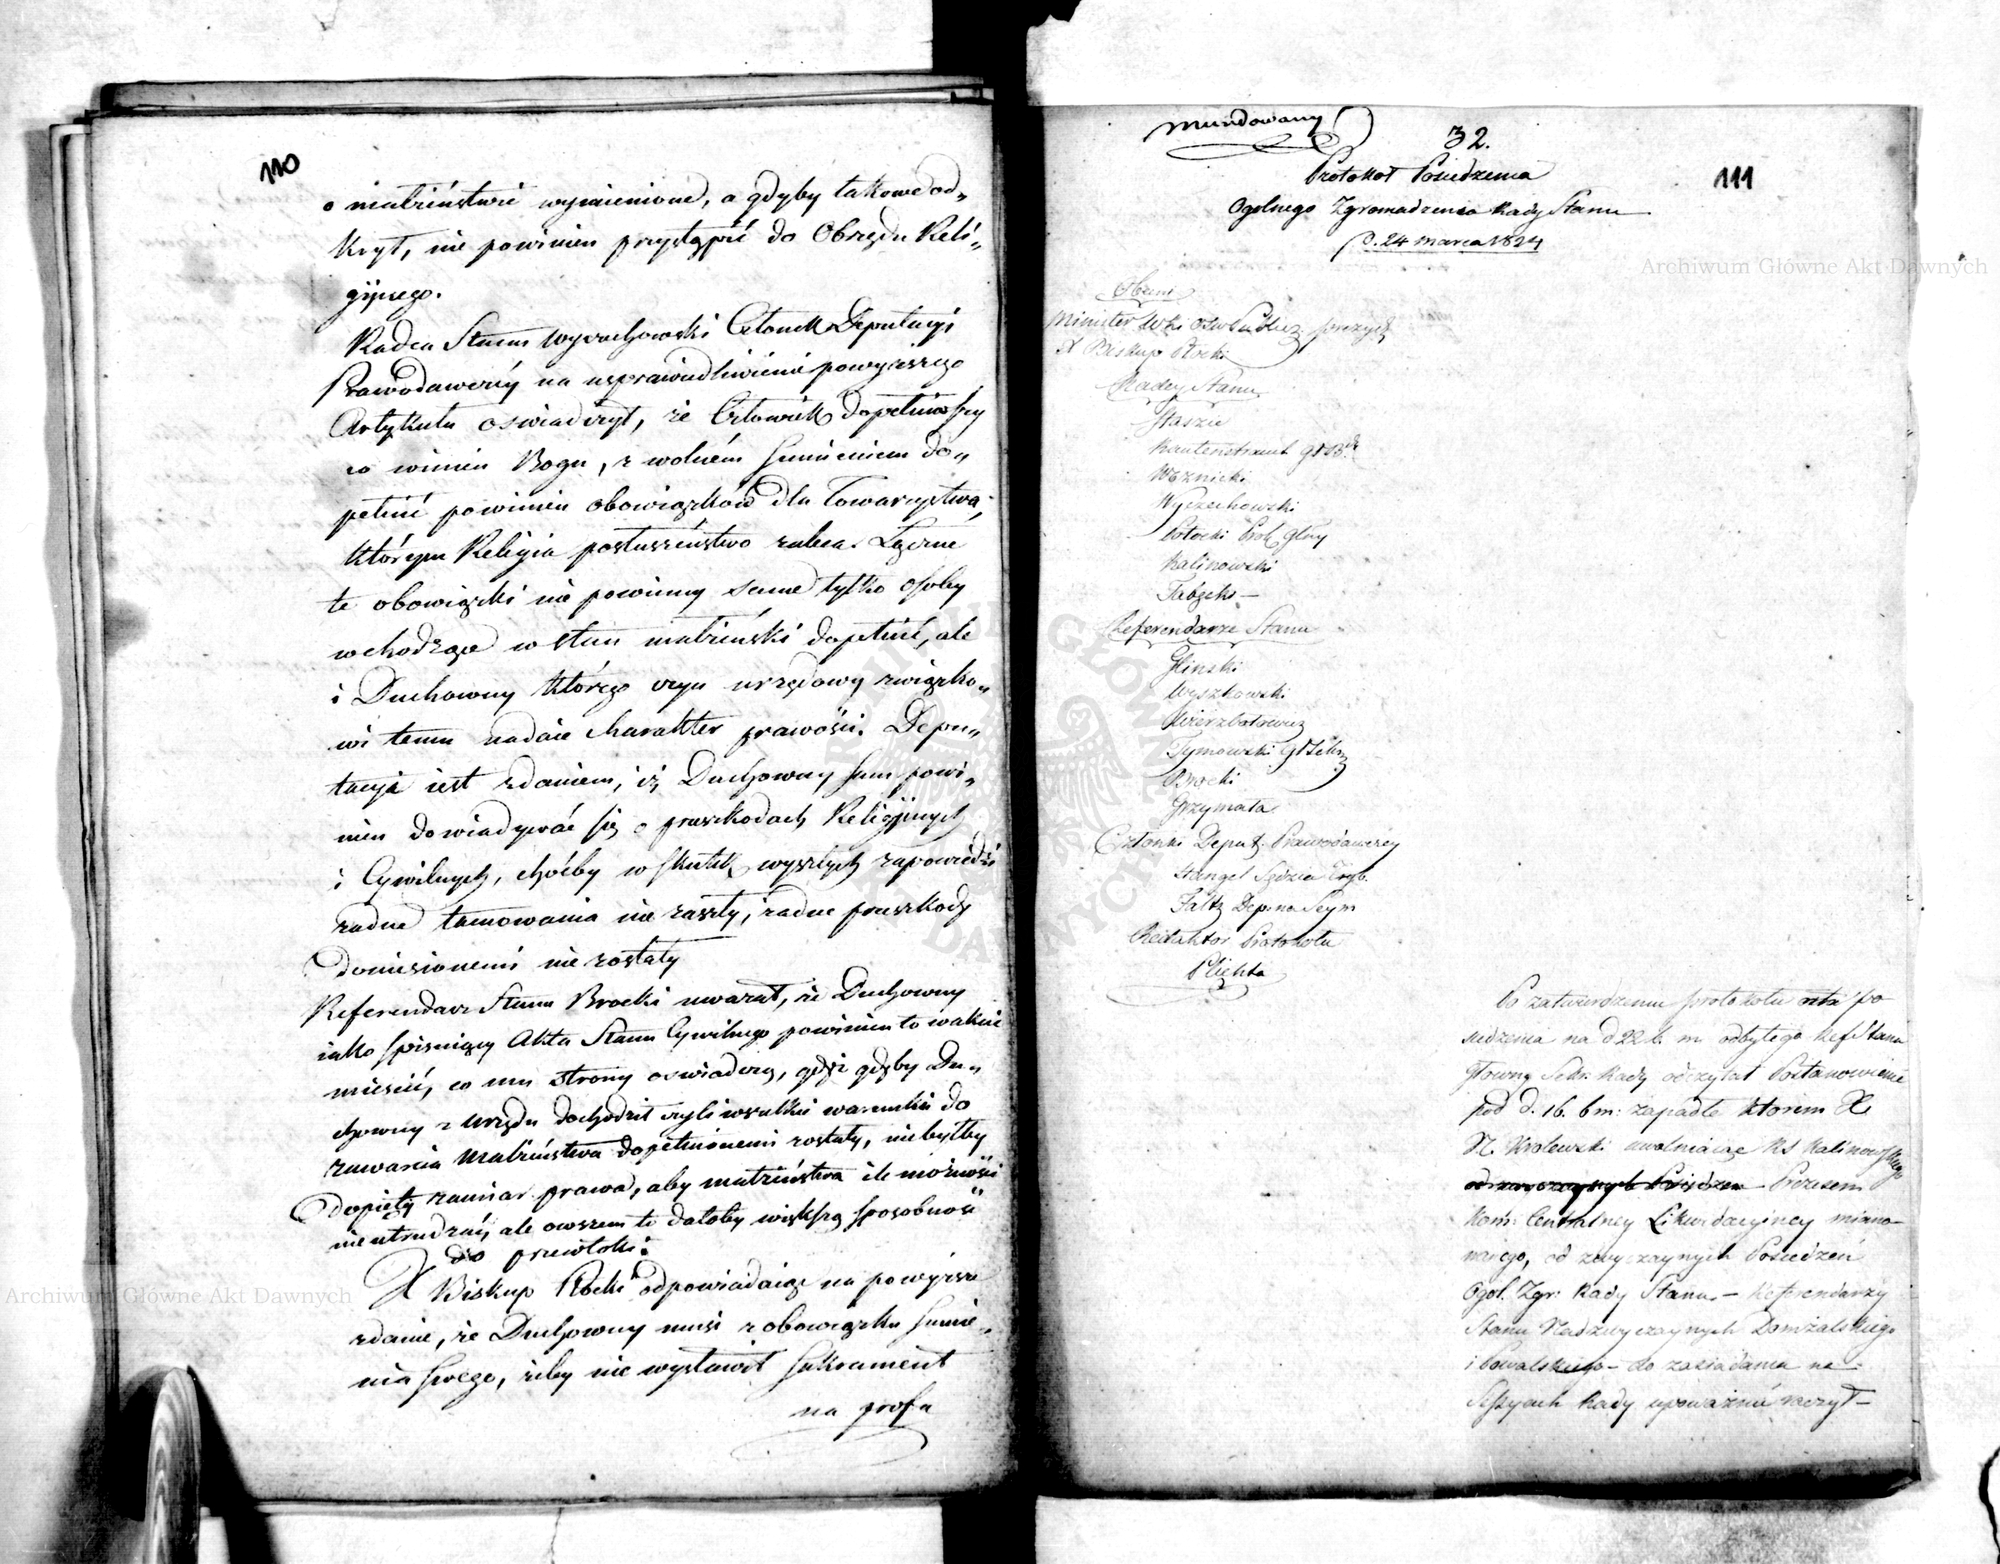 110
o małżeństwie wymienione, a gdyby takowe od„
krył, nie powinien przystąpić do Obrzędu Reli„
giynego.
Radca Stanu Wyczechowski Członek Deputacyi
Prawodawczéy na usprawiedliwienie powyższego
Artykułu oswiadczył, że Człowiek dopełniwszy
co winien Bogu, z wolném sumieniem do„
pełnić powinien obowiązków dla Towarzystwa,
którym Religia posłuszeństwo zaleca. Łączne
te obowiązki nie powinny same tylko osoby
wchodzące w stan małżeński dopełnić, ale
i Duchowny którego czyn urzędowy związko„
wi temu nadaie charakter prawości. Depu„
tacya iest zdaniem, iż Duchowny sam powi„
nien dowiadywać się o przeszkodach Religijnych
i Cywilnych, choćby w skutek wyszłych zapowiedzi
żadne tamowania nie zaszły, i żadne przeszkody
doniesionemi nie zostały
Referendarz Stanu Brocki uważał, że Duchowny
iako spisuiący Akta Stanu Cywilnego powinien to w akcie
mieścić, co mu strony oswiadczą, gdyż gdyby Du„
chowny z urzędu dochodził czyli wszelkie warunki do
zawarcia Małżeństwa dopełnionemi zostały, nie byłby
dopięty zamiar prawa, aby małżeństwa ile możności
nie utrudzać, ale owszem to dałoby większą sposobność
do przewłoki.
X Biskup Płocki odpowiadaiąc na powyższe
zdanie, że Duchowny musi z obowiązku sumie„
nia swego, żeby nie wystawił Sakrament
na profa
Mundowany
32.
111
Protokół Posiedzenia
Ogolnego Zgromadzenia Rady Stanu
d. 24 marca 1824
Obecni
Minister Wki Oswi Publicz. prezyd.
X Biskup Płocki
Radcy Stanu
Staszic
Kautenstrauch
Woźnicki
Wyczechowski
Potocki Prok. Głny
Kalinowski
Referendarze Stanu
Glinski
Wyszkowski
Wierzbołowicz
Tymowski Gł Sekr
Brocki
Grzymała
Członki Deput. Prawodawczéy
Hangel Sędzia Tryb.
Faltz Dep. na Seym
Redaktor Protokołu
Plichta
Po zatwierdzeniu protokołu z po
siedzenia na d 22 b. m. odbytego Ref Stanu
Głowny Sekr. Rady odczytał Postanowienie
pod d. 16. b m: zapadłe ktorem Xe
N. Krolewski uwalniaiąc RS Kalinowskiego
od zwyczaynych Posiedzen Prezesem
Kom: Centralney Likwidacyiney miano-
wanego, od zwyczaynych Posiedzeń
Ogol. Zgr: Rady Stanu – Referendarzy
Stanu Nadzwyczaynych Domżalskiego
i Kowalskiego – do zasiadania na
Sessyach Rady upoważnić raczył –
Archiwum Główne Akt Dawnych
Archiwum Główne Akt Dawnych